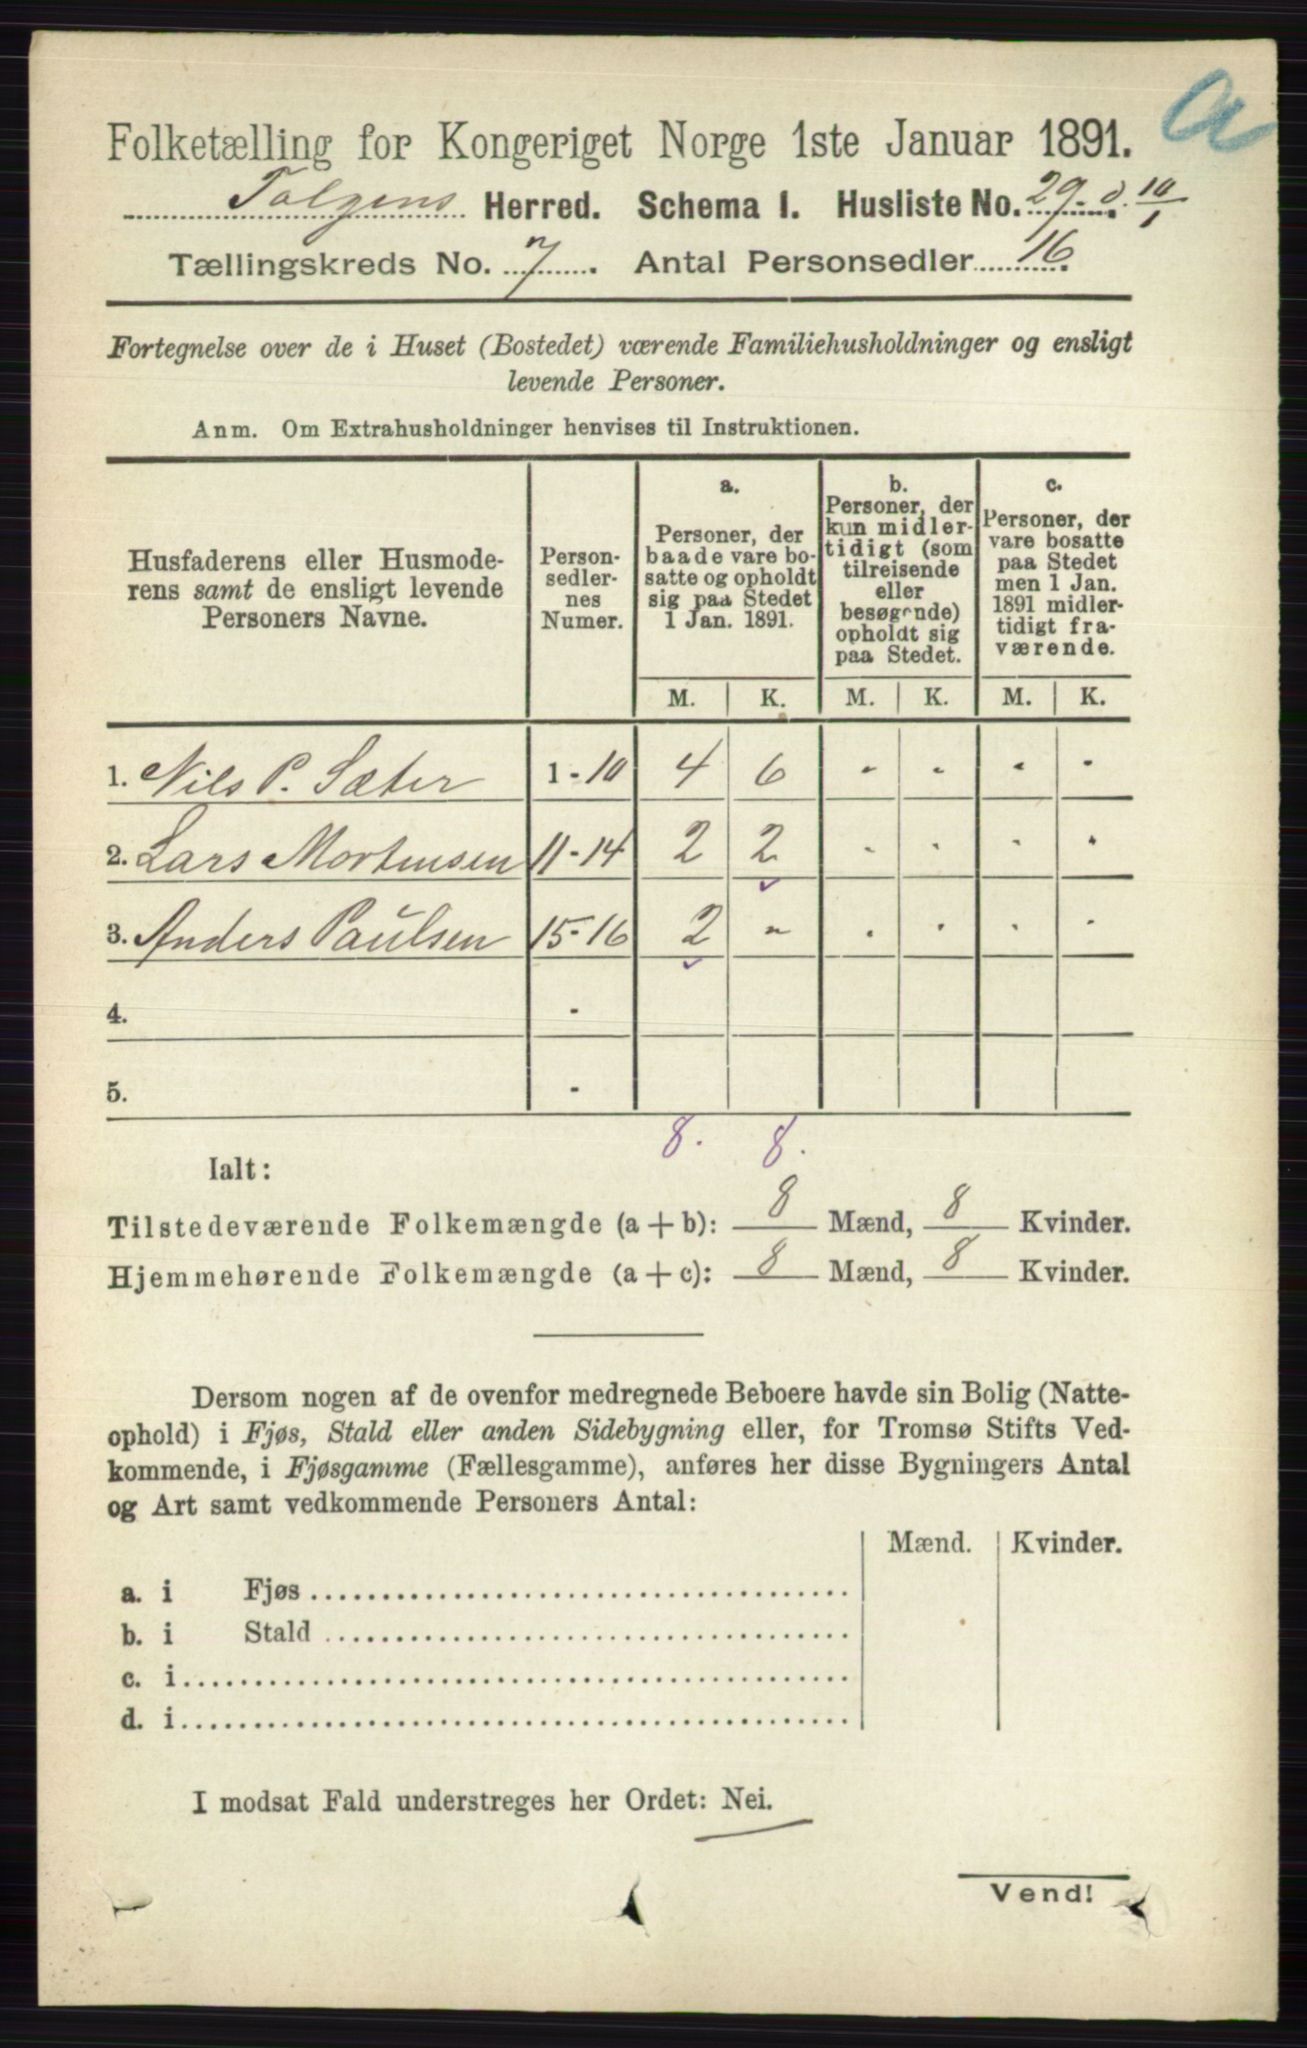 a
Folketælling for Kongeriget Norge 1ste Januar 1891.
Tolgens Herred. Schema I. Husliste No. 29 d. 10/1
Tællingskreds No. 7. Antal Personsedler 16.
Fortegnelse over de i Huset (Bostedet) værende Familiehusholdninger og ensligt
levende Personer.
Anm. Om Extrahusholdninger henvises til Instruktionen.
Husfaderens eller Husmode-
rens samt de ensligt levende
Personers Navne.
Person-
sedler-
nes
Numer.
a.
Personer, der
baade vare bo-
satte og opholdt
sig paa Stedet
1 Jan. 1891.
b.
Personer, der
kun midler-
tidigt (som
tilreisende
eller
besøgende)
opholdt sig
paa Stedet.
c.
Personer, der
vare bosatte
paa Stedet
men 1 Jan.
1891 midler-
tidigt fra-
værende.
M. K. M. K. M. K.
1. Nils P. Sæter 1 - 10 4 6 - - - -
2. Lars Mortensen 11 - 14 2 2 - - - -
3. Anders Paulsen 15 - 16 2 - - - - -
4. -
5. -
8. 8.
Ialt:
Tilstedeværende Folkemængde (a + b): 8 Mænd, 8 Kvinder.
Hjemmehørende Folkemængde (a + c): 8 Mænd, 8 Kvinder.
Dersom nogen af de ovenfor medregnede Beboere havde sin Bolig (Natte-
ophold) i Fjøs, Stald eller anden Sidebygning eller, for Tromsø Stifts Ved-
kommende, i Fjøsgamme (Fællesgamme), anføres her disse Bygningers Antal
og Art samt vedkommende Personers Antal:
Mænd. Kvinder.
a. i Fjøs
b. i Stald
c. i
d. i
I modsat Fald understreges her Ordet: Nei.
Vend!